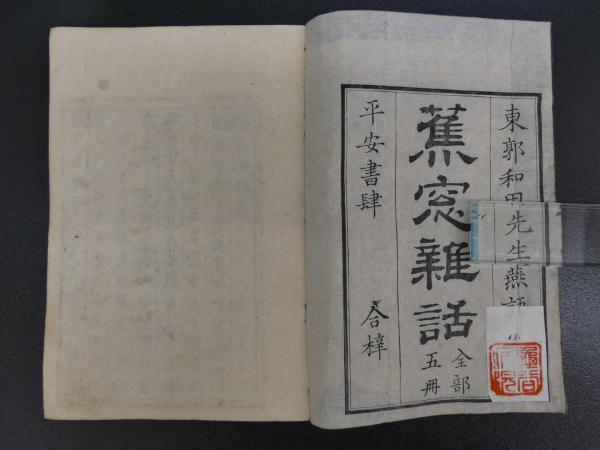 東郭和田先生燕語
蕉窓雜話
全部
五冊
平安書肆 合梓